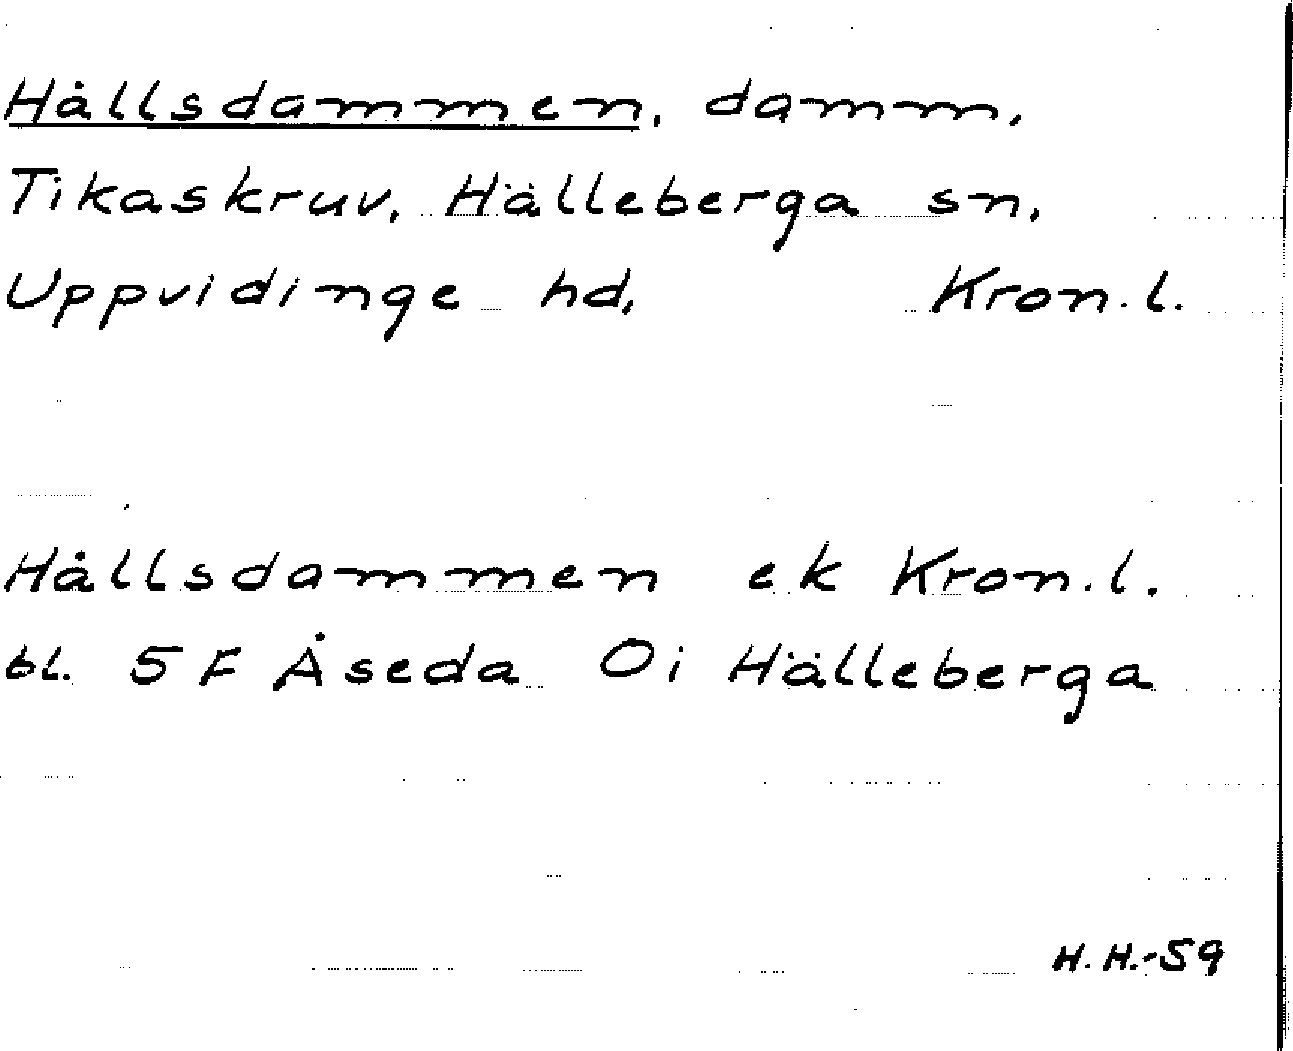 Hållsdammen, damm,
Tikaskruv, Hälleberga sn,
Uppvidinge hd, Kron. l.
Hållsdammen ek Kron. l.
bl. 5 F Åseda Oi Hälleberga
H. H.-59